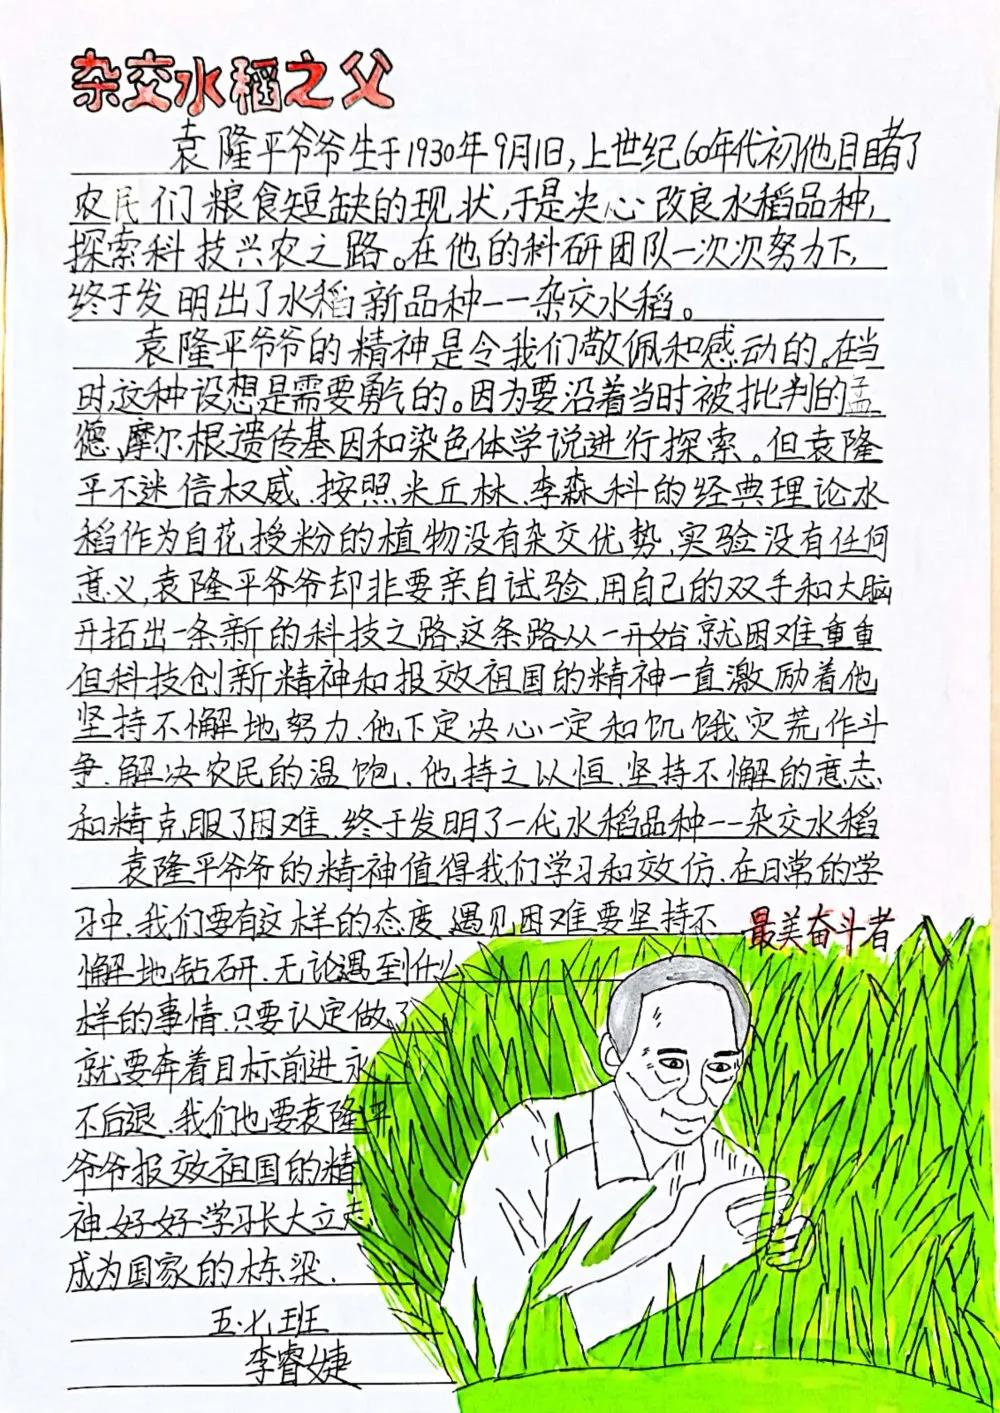 杂交水稻之父
袁隆平爷爷生于1930年9月1日,上世纪60年代初他目睹了
农民们粮食短缺的现状,于是决心改良水稻品种,
探索科技兴农之路。在他的科研团队一次次努力下,
终于发明出了水稻新品种——杂交水稻。
袁隆平爷爷的精神是令我们敬佩和感动的。在当
时这种设想是需要勇气的。因为要沿着当时被批判的孟
德、摩尔根遗传基因和染色体学说进行探索。但袁隆
平不迷信权威.按照米丘林.李森科的经典理论水
稻作为自花授粉的植物没有杂交优势,实验没有任何
意义,袁隆平爷爷却非要亲自试验,用自己的双手和大脑
开拓出一条新的科技之路.这条路从一开始就困难重重
但科技创新精神和报效祖国的精神一直激励着他
坚持不懈地努力.他下定决心一定和饥饿灾荒作斗
争.解决农民的温饱.他持之以恒.坚持不懈的意志
和精克服了困难.终于发明了一代水稻品种——杂交水稻
袁隆平爷爷的精神值得我们学习和效仿.在日常的学
习中.我们要有这样的态度.遇见困难要坚持不
懈地钻研.无论遇到什么
样的事情.只要认定做了
就要奔着目标前进永
不后退.我们也要袁隆平
爷爷报效祖国的精
神.好好学习长大立志
成为国家的栋梁.
五·七班
李睿婕
最美奋斗者